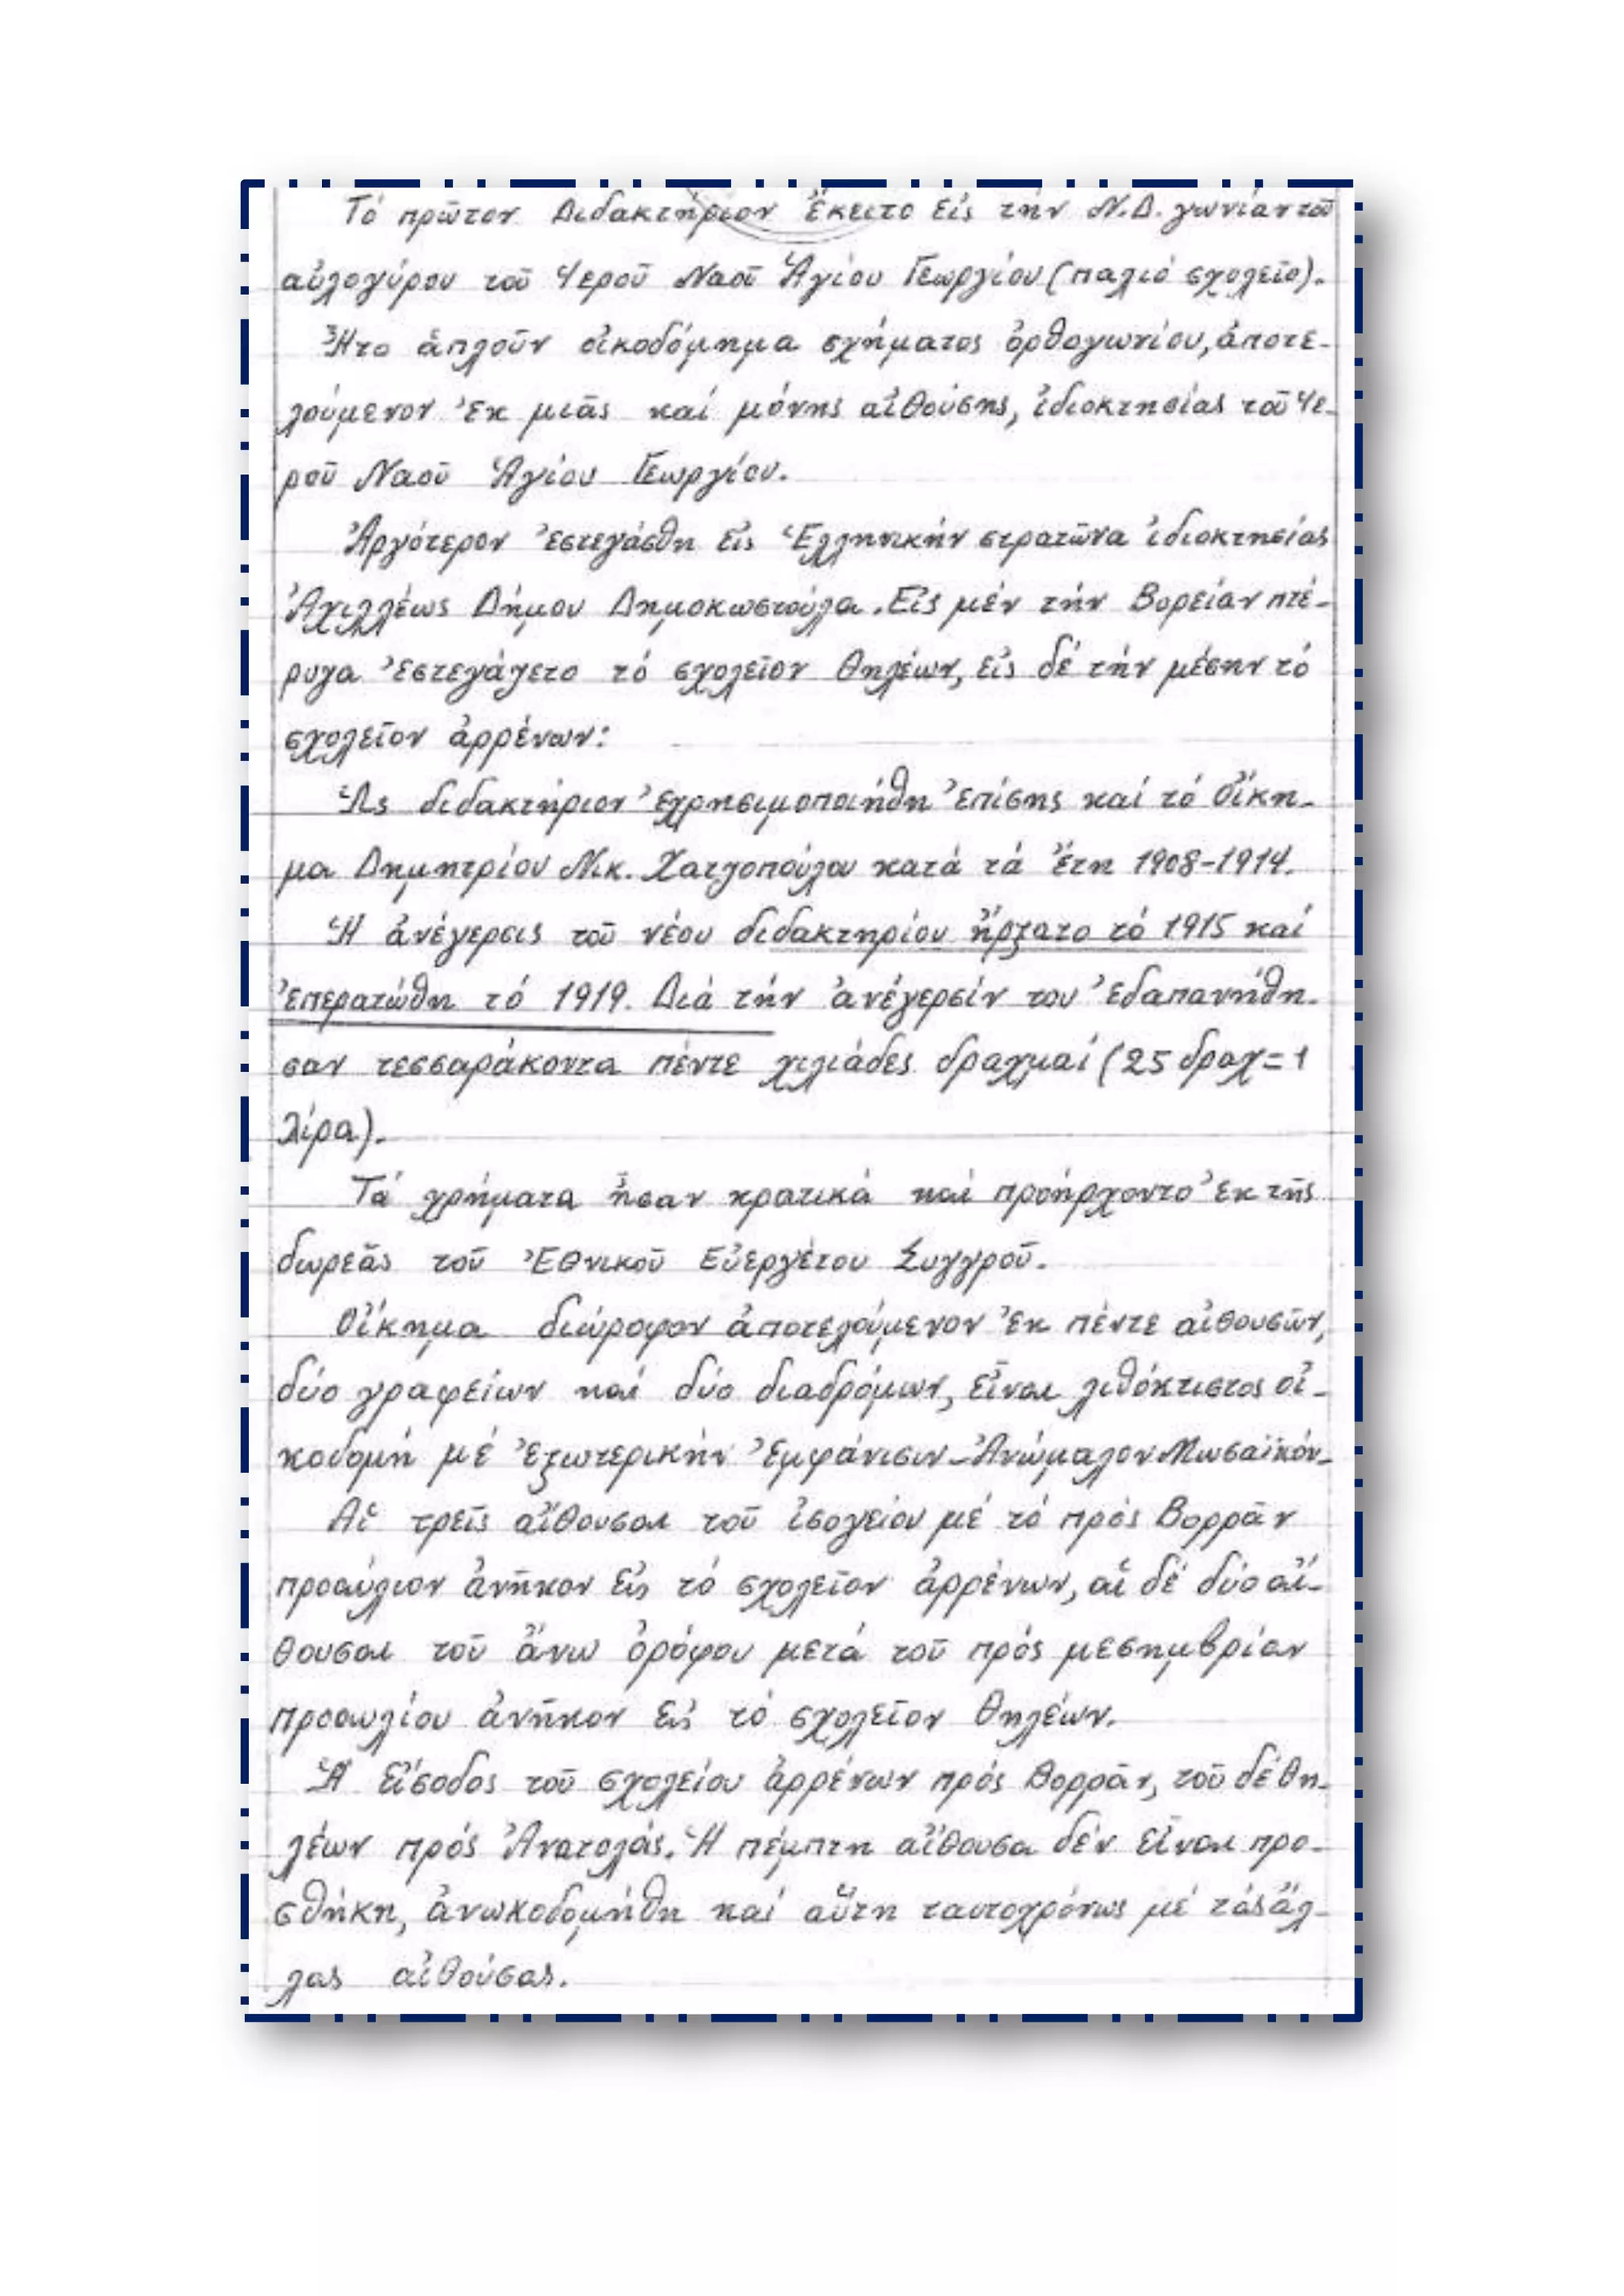 Τό πρῶτον Διδακτήριον ἔκειτο εἰς τήν Ν.Δ. γωνίαν τοῦ
αὐλογύρου τοῦ Ἱεροῦ Ναοῦ Ἁγίου Γεωργίου (παλιό σχολεῖο).
Ἦτο ἁπλοῦν οἰκοδόμημα σχήματος ὀρθογωνίου, ἀποτε-
λούμενον ἐκ μιᾶς καί μόνης αἰθούσης, ἰδιοκτησίας τοῦ Ἱε-
ροῦ Ναοῦ Ἁγίου Γεωργίου.
Ἀργότερον ἐστεγάσθη εἰς Ἑλληνικήν στρατῶνα ἰδιοκτησίας
Ἀχιλλέως Δήμου Δημοκωστούλα. Εἰς μέν τήν Βορείαν πτέ-
ρυγα ἐστεγάζετο τό σχολεῖον θηλέων, εἰς δέ τήν μέσην τό
σχολεῖον ἀρρένων:
Ὡς διδακτήριον ἐχρησιμοποιήθη ἐπίσης καί τό οἴκη-
μα Δημητρίου Νικ. Χατζοπούλου κατά τά ἔτη 1908-1914.
Ἡ ἀνέγερσις τοῦ νέου διδακτηρίου ἤρξατο τό 1915 καί
ἐπερατώθη τό 1919. Διά τήν ἀνέγερσίν του ἐδαπανήθη-
σαν τεσσαράκοντα πέντε χιλιάδες δραχμαί (25 δραχ=1
λίρα).
Τά χρήματα ἦσαν κρατικά καί προήρχοντο ἐκ τῆς
δωρεᾶς τοῦ Ἐθνικοῦ Εὐεργέτου Συγγροῦ.
Οἴκημα διώροφον ἀποτελούμενον ἐκ πέντε αἰθουσῶν,
δύο γραφείων καί δύο διαδρόμων, εἶναι λιθόκτιστος οἰ-
κοδομή μέ ἐξωτερικήν ἐμφάνισιν-Ἀνώμαλον Μωσαϊκόν-
Αἱ τρεῖς αἴθουσαι τοῦ ἰσογείου μέ τό πρός Βορρᾶν
προαύλιον ἀνῆκον εἰς τό σχολεῖον ἀρρένων, αἱ δέ δύο αἴ-
θουσαι τοῦ ἄνω ὀρόφου μετά τοῦ πρός μεσημβρίαν
προαυλίου ἀνῆκον εἰς τό σχολεῖον θηλέων.
Ἡ εἴσοδος τοῦ σχολείου ἀρρένων πρός Βορρᾶν, τοῦ δέ θη-
λέων πρός Ἀνατολάς. Ἡ πέμπτη αἴθουσα δέν εἶναι προ-
σθήκη, ἀνωκοδομήθη καί αὕτη ταυτοχρόνως μέ τάς ἄλ-
λας αἰθούσας.